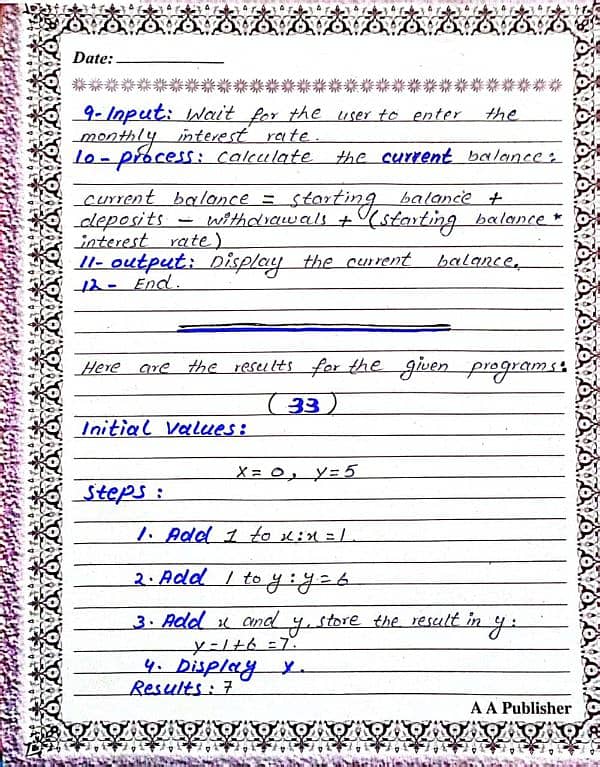 Date:
9- Input: Wait for the user to enter the
monthly interest rate.
10 - process: calculate the current balance:
current balance = starting balance +
deposits - withdrawals + (starting balance *
interest rate)
11- output: Display the current balance.
12 - End.
Here are the results for the given programs:
( 33 )
Initial Values:
X = 0, y = 5
Steps :
1. Add 1 to x: x = 1.
2. Add 1 to y : y = 6
3. Add x and y, store the result in y:
y = 1+6 = 7.
4. Display y.
Results : 7
A A Publisher